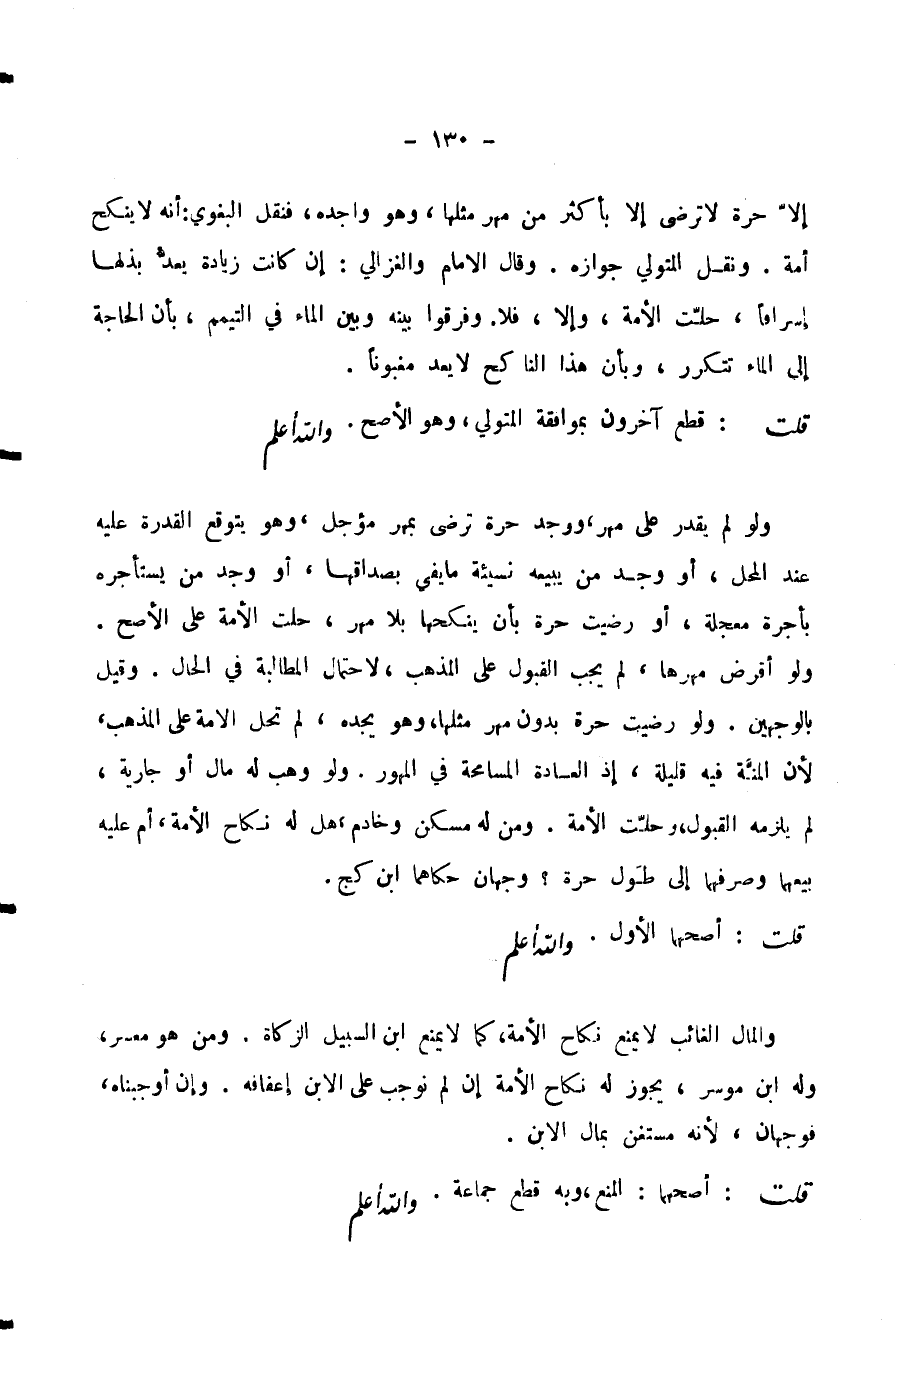 - ١٣٠ -
إلا حرة لا ترضى إلا بأكثر من مهر مثلها ، وهو واجده ، فنقل البغوي : أنه لا ينكح
أمة . ونقل المتولي جوازه . وقال الامام والغزالي : إن كانت زيادة يعدّ بذلها
إسرافاً ، حلّت الأمة ، وإلا ، فلا. وفرقوا بينه وبين الماء في التيمم ، بأن الحاجة
إلى الماء تتكرر ، وبأن هذا الناكح لا يعد مغبوناً .
قلت : قطع آخرون بموافقة المتولي ، وهو الأصح . والله أعلم
ولو لم يقدر على مهر ، ووجد حرة ترضى بمهر مؤجل ، وهو يتوقع القدرة عليه
عند المحل ، أو وجد من يبيعه نسيئة ما يفي بصداقها ، أو وجد من يستأجره
بأجرة معجلة ، أو رضيت حرة بأن ينكحها بلا مهر ، حلت الأمة على الأصح .
ولو أقرض مهرها ، لم يجب القبول على المذهب ، لاحتمال المطالبة في الحال . وقيل
بالوجهين . ولو رضيت حرة بدون مهر مثلها، وهو يجده ، لم تحل الامة على المذهب ،
لأن المنّة فيه قليلة ، إذ العادة المسامحة في المهور . ولو وهب له مال أو جارية ،
لم يلزمه القبول، وحلّت الأمة . ومن له مسكن وخادم ، هل له نكاح الأمة ، أم عليه
بيعها وصرفها إلى طَول حرة ؟ وجهان حكاهما ابن كج .
قلت : أصحها الأول . والله أعلم
والمال الغائب لا يمنع نكاح الأمة، كما لا يمنع ابن السبيل الزكاة . ومن هو معسر ،
وله ابن موسر ، يجوز له نكاح الأمة إن لم نوجب على الابن إعفافه . وإن أوجبناه ،
فوجهان ، لأنه مستغن بمال الابن .
قلت : أصحها : المنع ، وبه قطع جماعة . والله أعلم